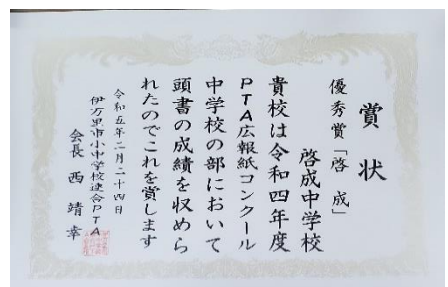 賞状
優秀賞「啓成」
啓成中学校
貴校は令和四年度
PTA広報紙コンクール
中学校の部において
頭書の成績を収めら
れたのでこれを賞します
令和五年二月二十四日
伊万里市小中学校連合PTA
会長 西靖幸